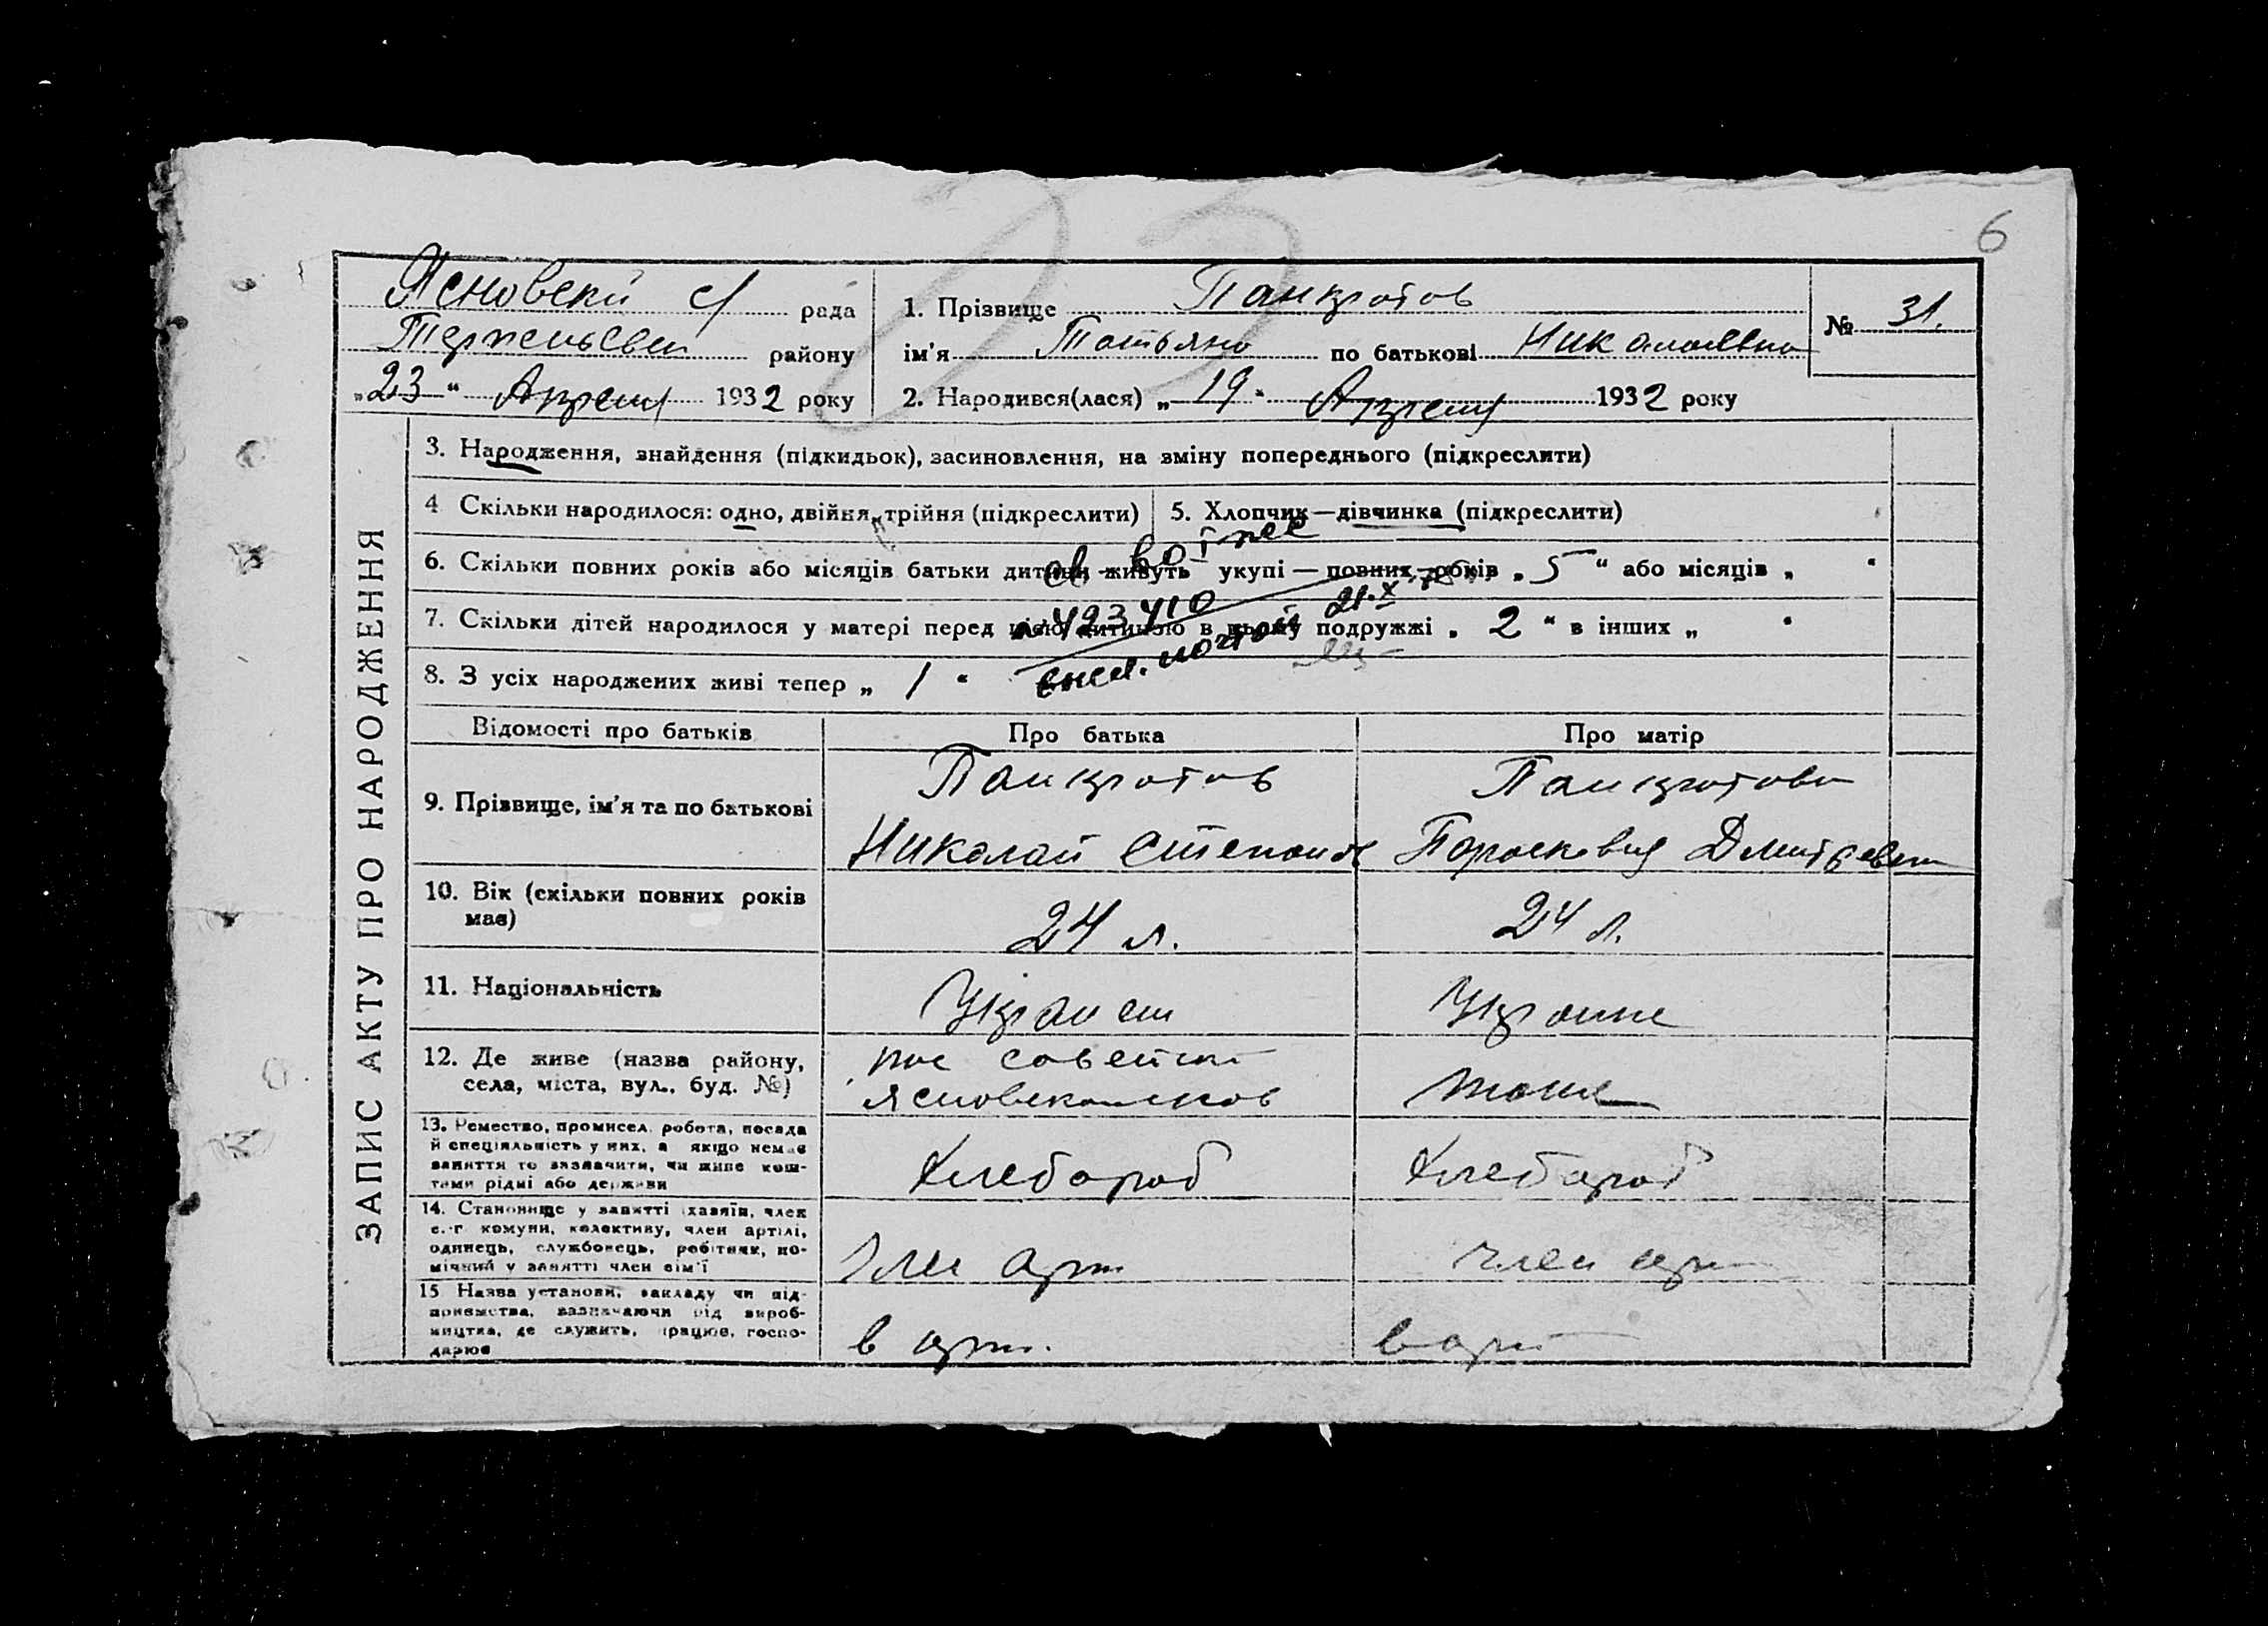 6
Ясновски с/ рада
Терпеньевск району
„23“ Апреля 1932 року
1. Прізвище Панкротов
ім’я Татьяна по батькові Николаевна
№ 31.
2. Народився(лася) „19“ Апреля 1932 року
ЗАПИС АКТУ ПРО НАРОДЖЕННЯ
3. Народження, знайдення (підкидьок), засиновлення, на зміну попереднього (підкреслити)
4 Скільки народилося: одно, двійня, трійня (підкреслити)
5. Хлопчик—дівчинка (підкреслити)
6. Скільки повних років або місяців батьки дитини живуть укупі — повних років „ 5 “ або місяців „ “
7. Скільки дітей народилося у матері перед цією дитиною в цьому подружжі „ 2 “ в інших „ “
8. З усіх народжених живі тепер „ 1 “
св-во
423410
21.X
почтой
Відомості про батьків
Про батька
Про матір
9. Прізвище, ім’я та по батькові
Панкротов
Николай Степанов
Панкротова
Порасковия Дмитревна
10. Вік (скільки повних років
має)
24 л.
24 л.
11. Національність
Украинец
Украине
12. Де живе (назва району,
села, міста, вул., буд. №)
пос советски
тоже
13. Ремество, промисел, робота, посада
й спеціяльність у них, а якщо немає
заняття то зазначити, чи живе кош-
тами рідні або держави
Хлебороб
Хлебороб
14. Становище у занятті (хазяїн, член
с.-г комуни, колективу, член артілі,
одинець, службовець, робітник, по-
мічний у занятті член сім’ї
Член арт
член арт
15 Назва установи, закладу чи під-
приємства, зазначаючи рід вироб-
ництва, де служить, працює, госпо-
дарює
в арт.
в арт